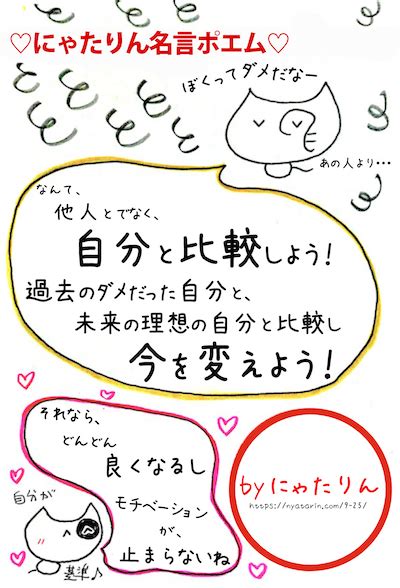 ♡にゃたりん名言ポエム♡
ぼくってダメだなー
あの人より・・・
なんて、
他人とでなく、
自分と比較しよう!
過去のダメだった自分と、
未来の理想の自分と比較し
今を変えよう!
それなら、
どんどん
良くなるし
モチベーション
が、
止まらないね
自分が
基準♪
byにゃたりん
https://nyatarin.com/9-23/